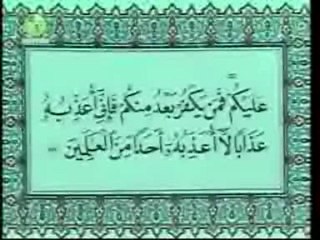 عَلَيْكُمْ ۖ فَمَن يَكْفُرْ بَعْدُ مِنكُمْ فَإِنِّي أُعَذِّبُهُ
عَذَابًا لَّا أُعَذِّبُهُ أَحَدًا مِّنَ الْعَالَمِينَ